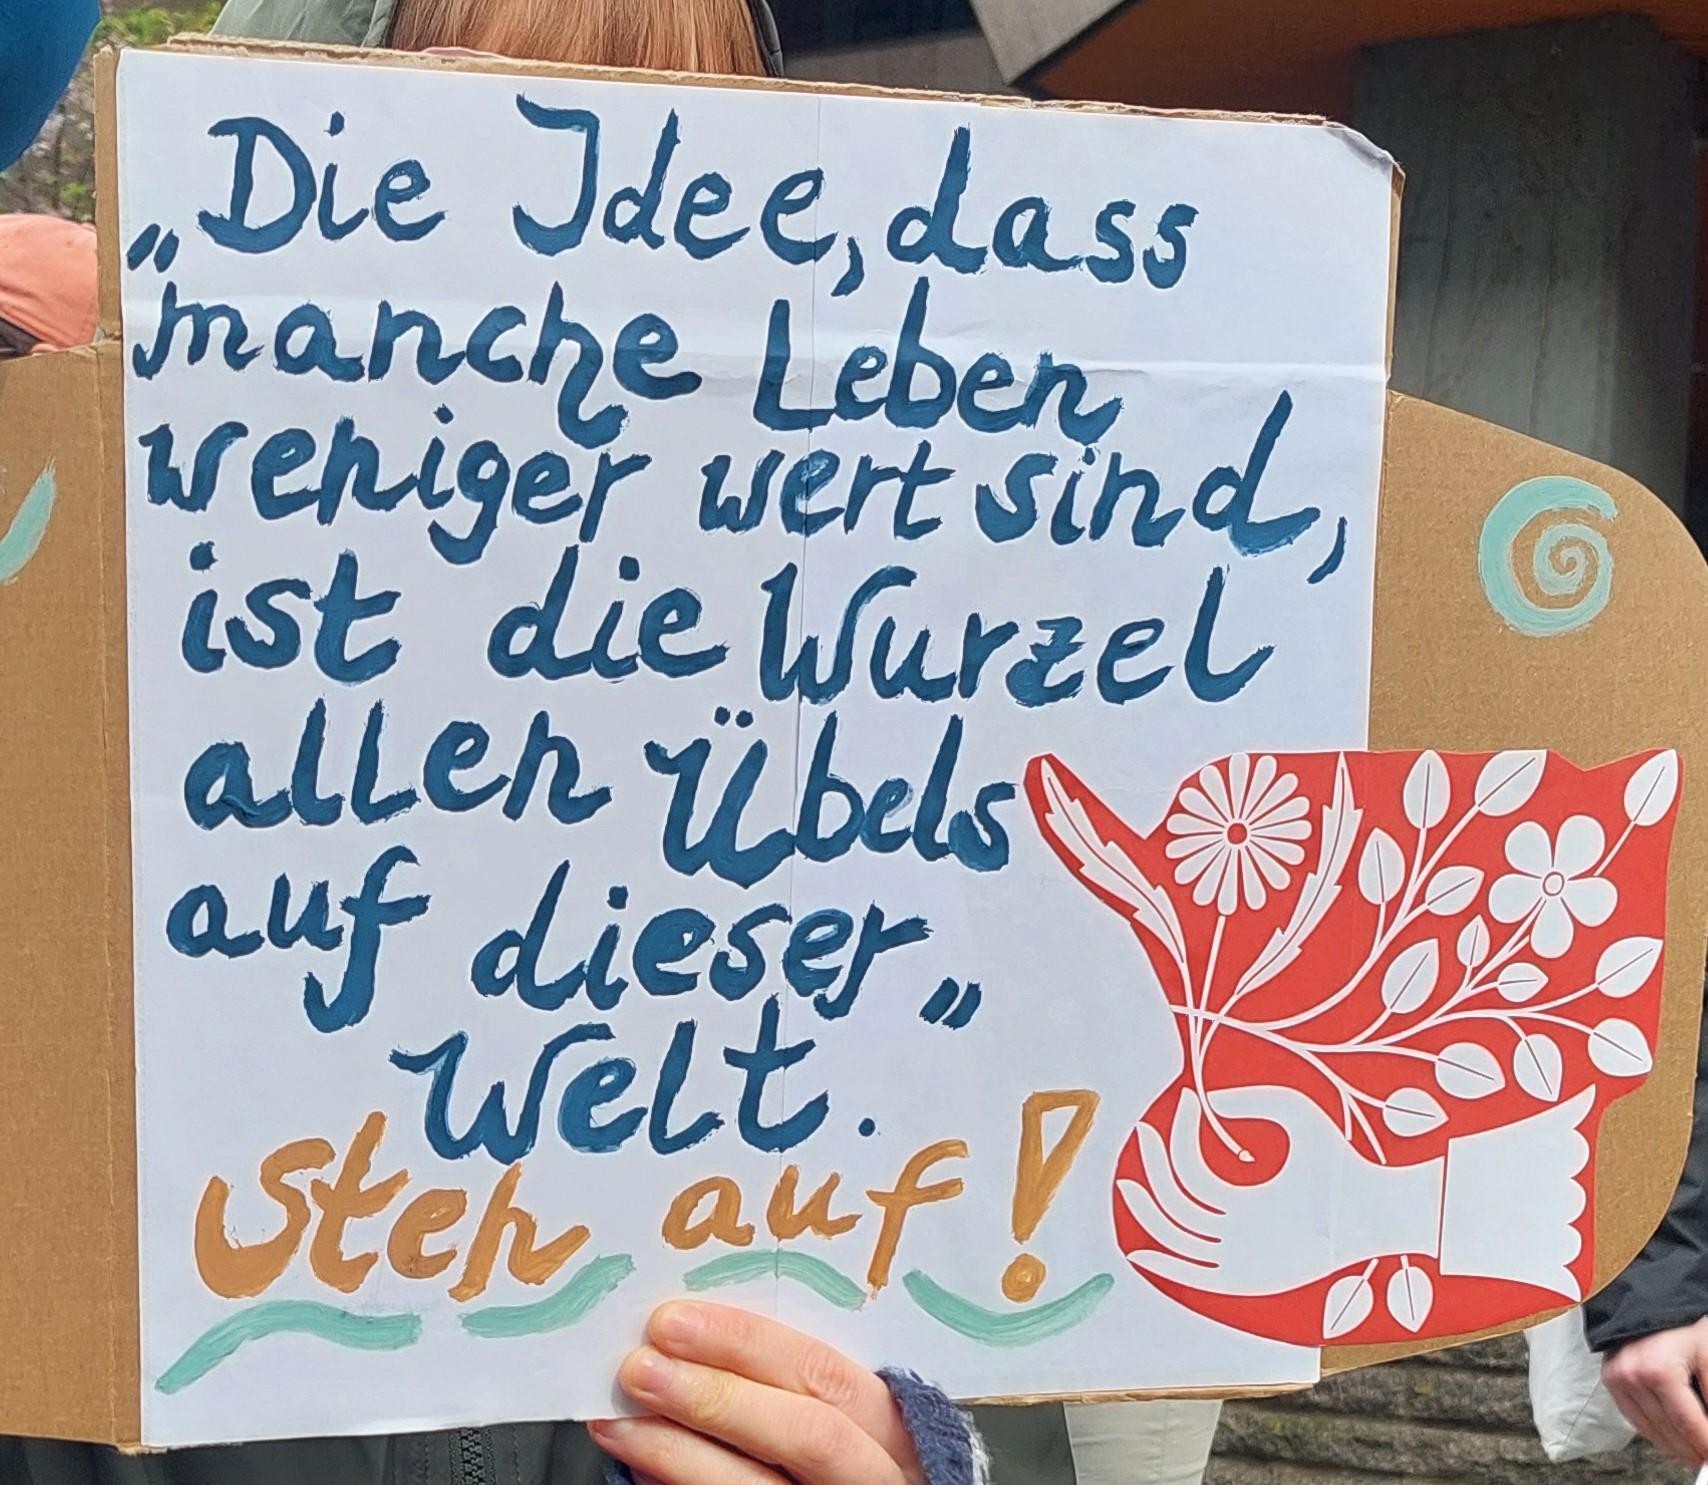 „Die Idee, dass
manche Leben
weniger wert sind,
ist die Wurzel
allen Übels
auf dieser „
Welt.
Steh auf!